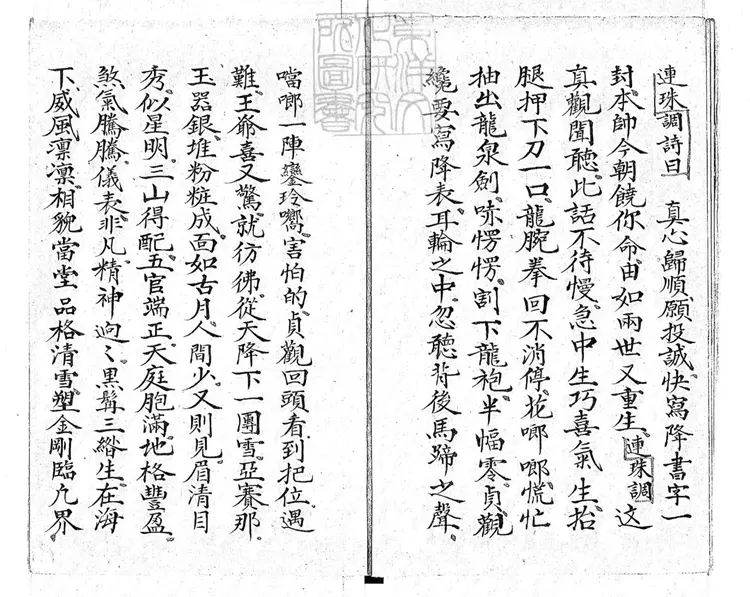 連珠調詩曰　真心歸順願投誠快寫降書字一
封本帥今朝饒你命由如兩世又重生連珠調這
真觀聞聽此話不待慢急中生巧喜氣生抬
腿押下刀一口龍腕拳回不消停花啷啷慌忙
抽出龍泉劍哧愣愣割下龍袍半幅零貞觀
纔要寫降表耳輪之中忽聽背後馬蹄之聲
噹啷一陣鑾玲嚮害怕的貞觀回頭看到把位遇
難王爺喜又驚就彷彿從天降下一團雪亞賽那
玉器銀堆粉粧成面如古月人間少又則見眉清目
秀似星明三山得配五官端正天庭胞滿地格豐盈
煞氣騰騰儀表非凡精神逈〻黑髯三綹生在海
下威風凛凛相貌當堂品格清雪塑金剛臨凡界